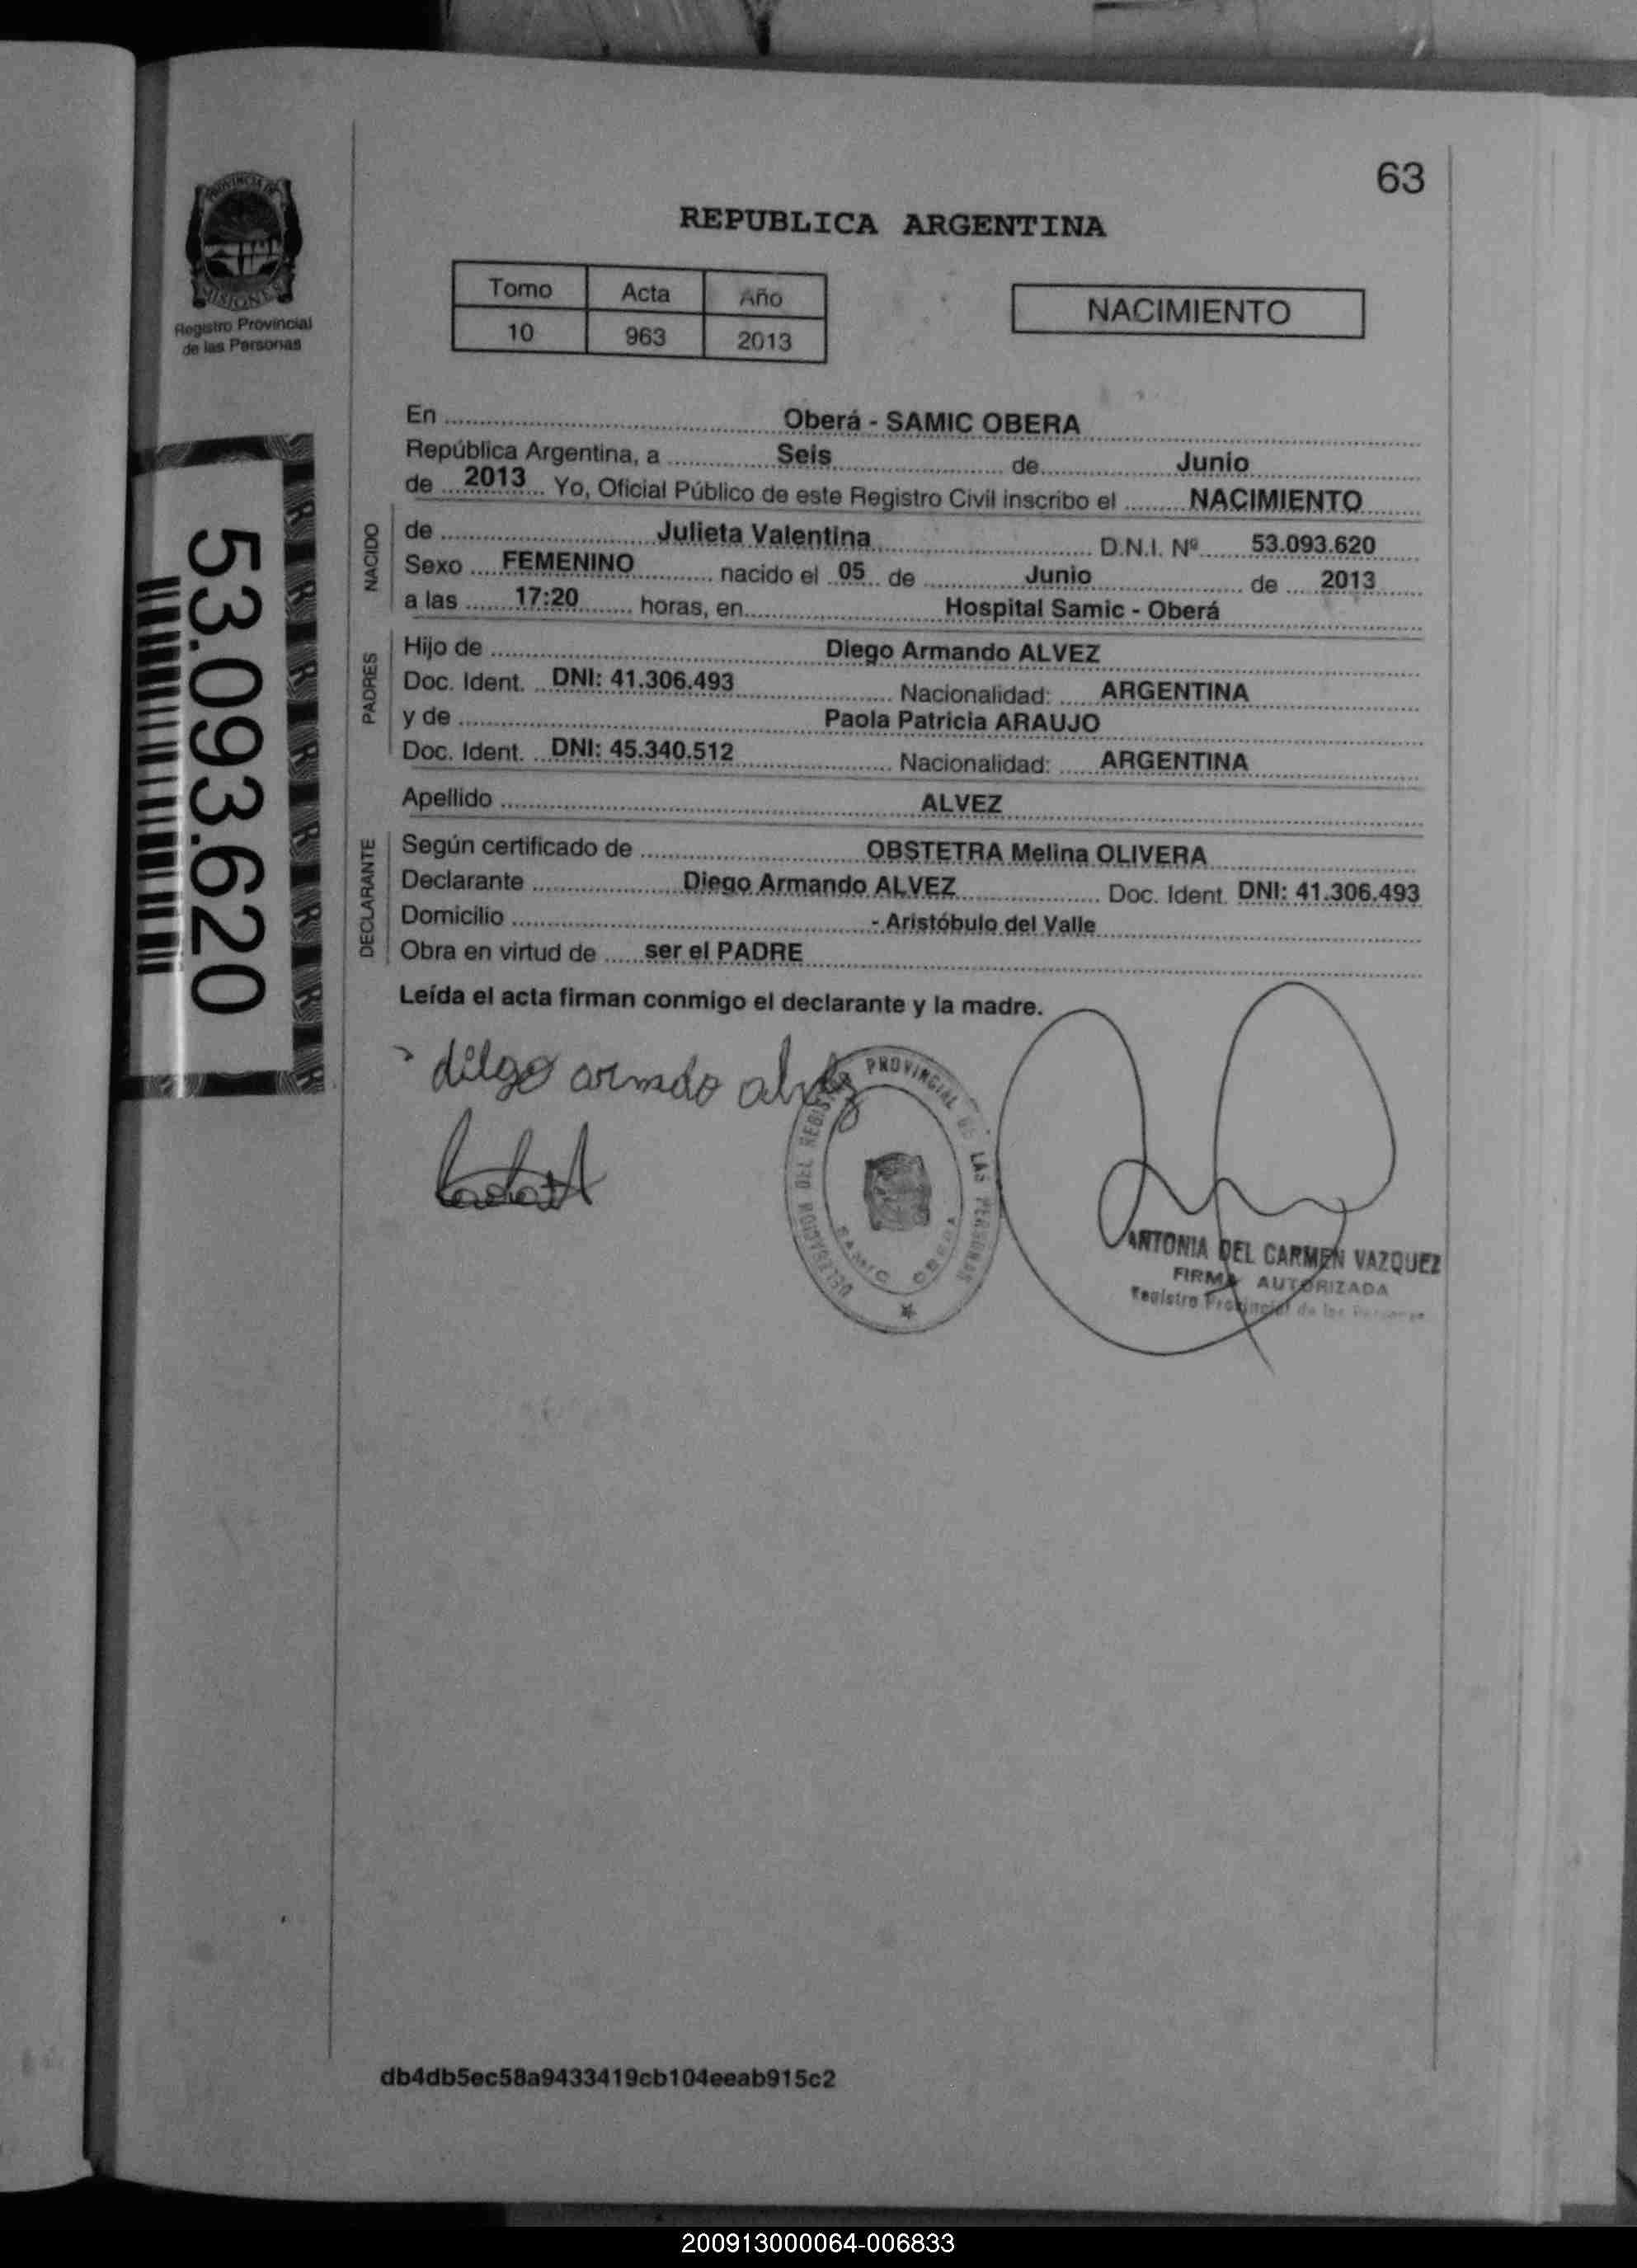 63
PROVINCIA DE
MISIONES
Registro Provincial
de las Personas
REPUBLICA ARGENTINA
Tomo Acta Año
10 963 2013
NACIMIENTO
53.093.620
En Oberá - SAMIC OBERA
República Argentina, a Seis de Junio
de 2013 Yo, Oficial Público de este Registro Civil inscribo el NACIMIENTO
NACIDO
de Julieta Valentina D.N.I. Nº 53.093.620
Sexo FEMENINO nacido el 05 de Junio de 2013
a las 17:20 horas, en Hospital Samic - Oberá
PADRES
Hijo de Diego Armando ALVEZ
Doc. Ident. DNI: 41.306.493 Nacionalidad: ARGENTINA
y de Paola Patricia ARAUJO
Doc. Ident. DNI: 45.340.512 Nacionalidad: ARGENTINA
Apellido ALVEZ
DECLARANTE
Según certificado de OBSTETRA Melina OLIVERA
Declarante Diego Armando ALVEZ Doc. Ident. DNI: 41.306.493
Domicilio - Aristóbulo del Valle
Obra en virtud de ser el PADRE
Leída el acta firman conmigo el declarante y la madre.
armado alvez
DELEGACION DEL REGISTRO PROVINCIAL DE LAS PERSONAS
SAMIC OBERA
ANTONIA DEL CARMEN VAZQUEZ
FIRMA AUTORIZADA
Registro Provincial de las Personas
db4db5ec58a9433419cb104eeab915c2
200913000064-006833